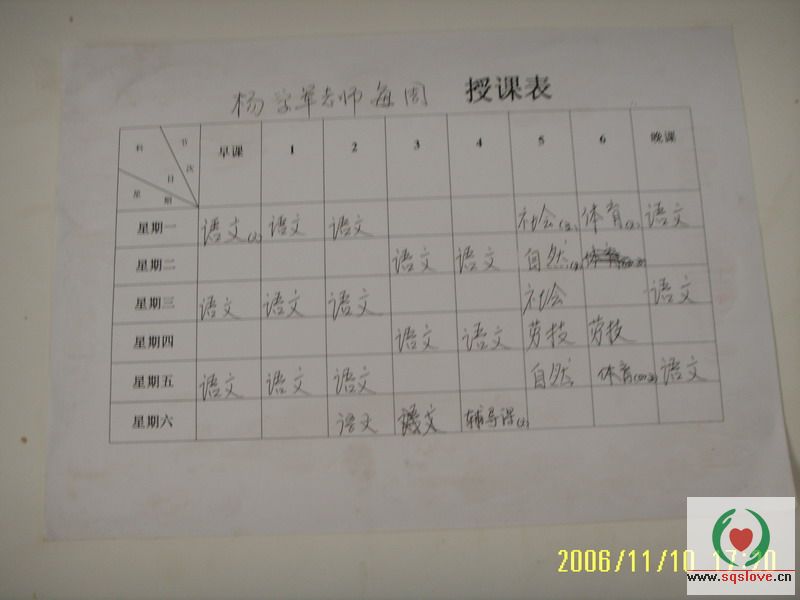 杨学军老师每周 授课表
科 目 节 次 星 期 早课 1 2 3 4 5 6 晚课
星期一 语文(2) 语文 语文 社会(2) 体育(2) 语文
星期二 语文 语文 自然(2)
星期三 语文 语文 语文 社会 语文
星期四 语文 语文 劳技 劳技
星期五 语文 语文 语文 自然 体育 语文
星期六 语文 语文 辅导课(2)
2006/11/10 17:20
www.sqslove.cn